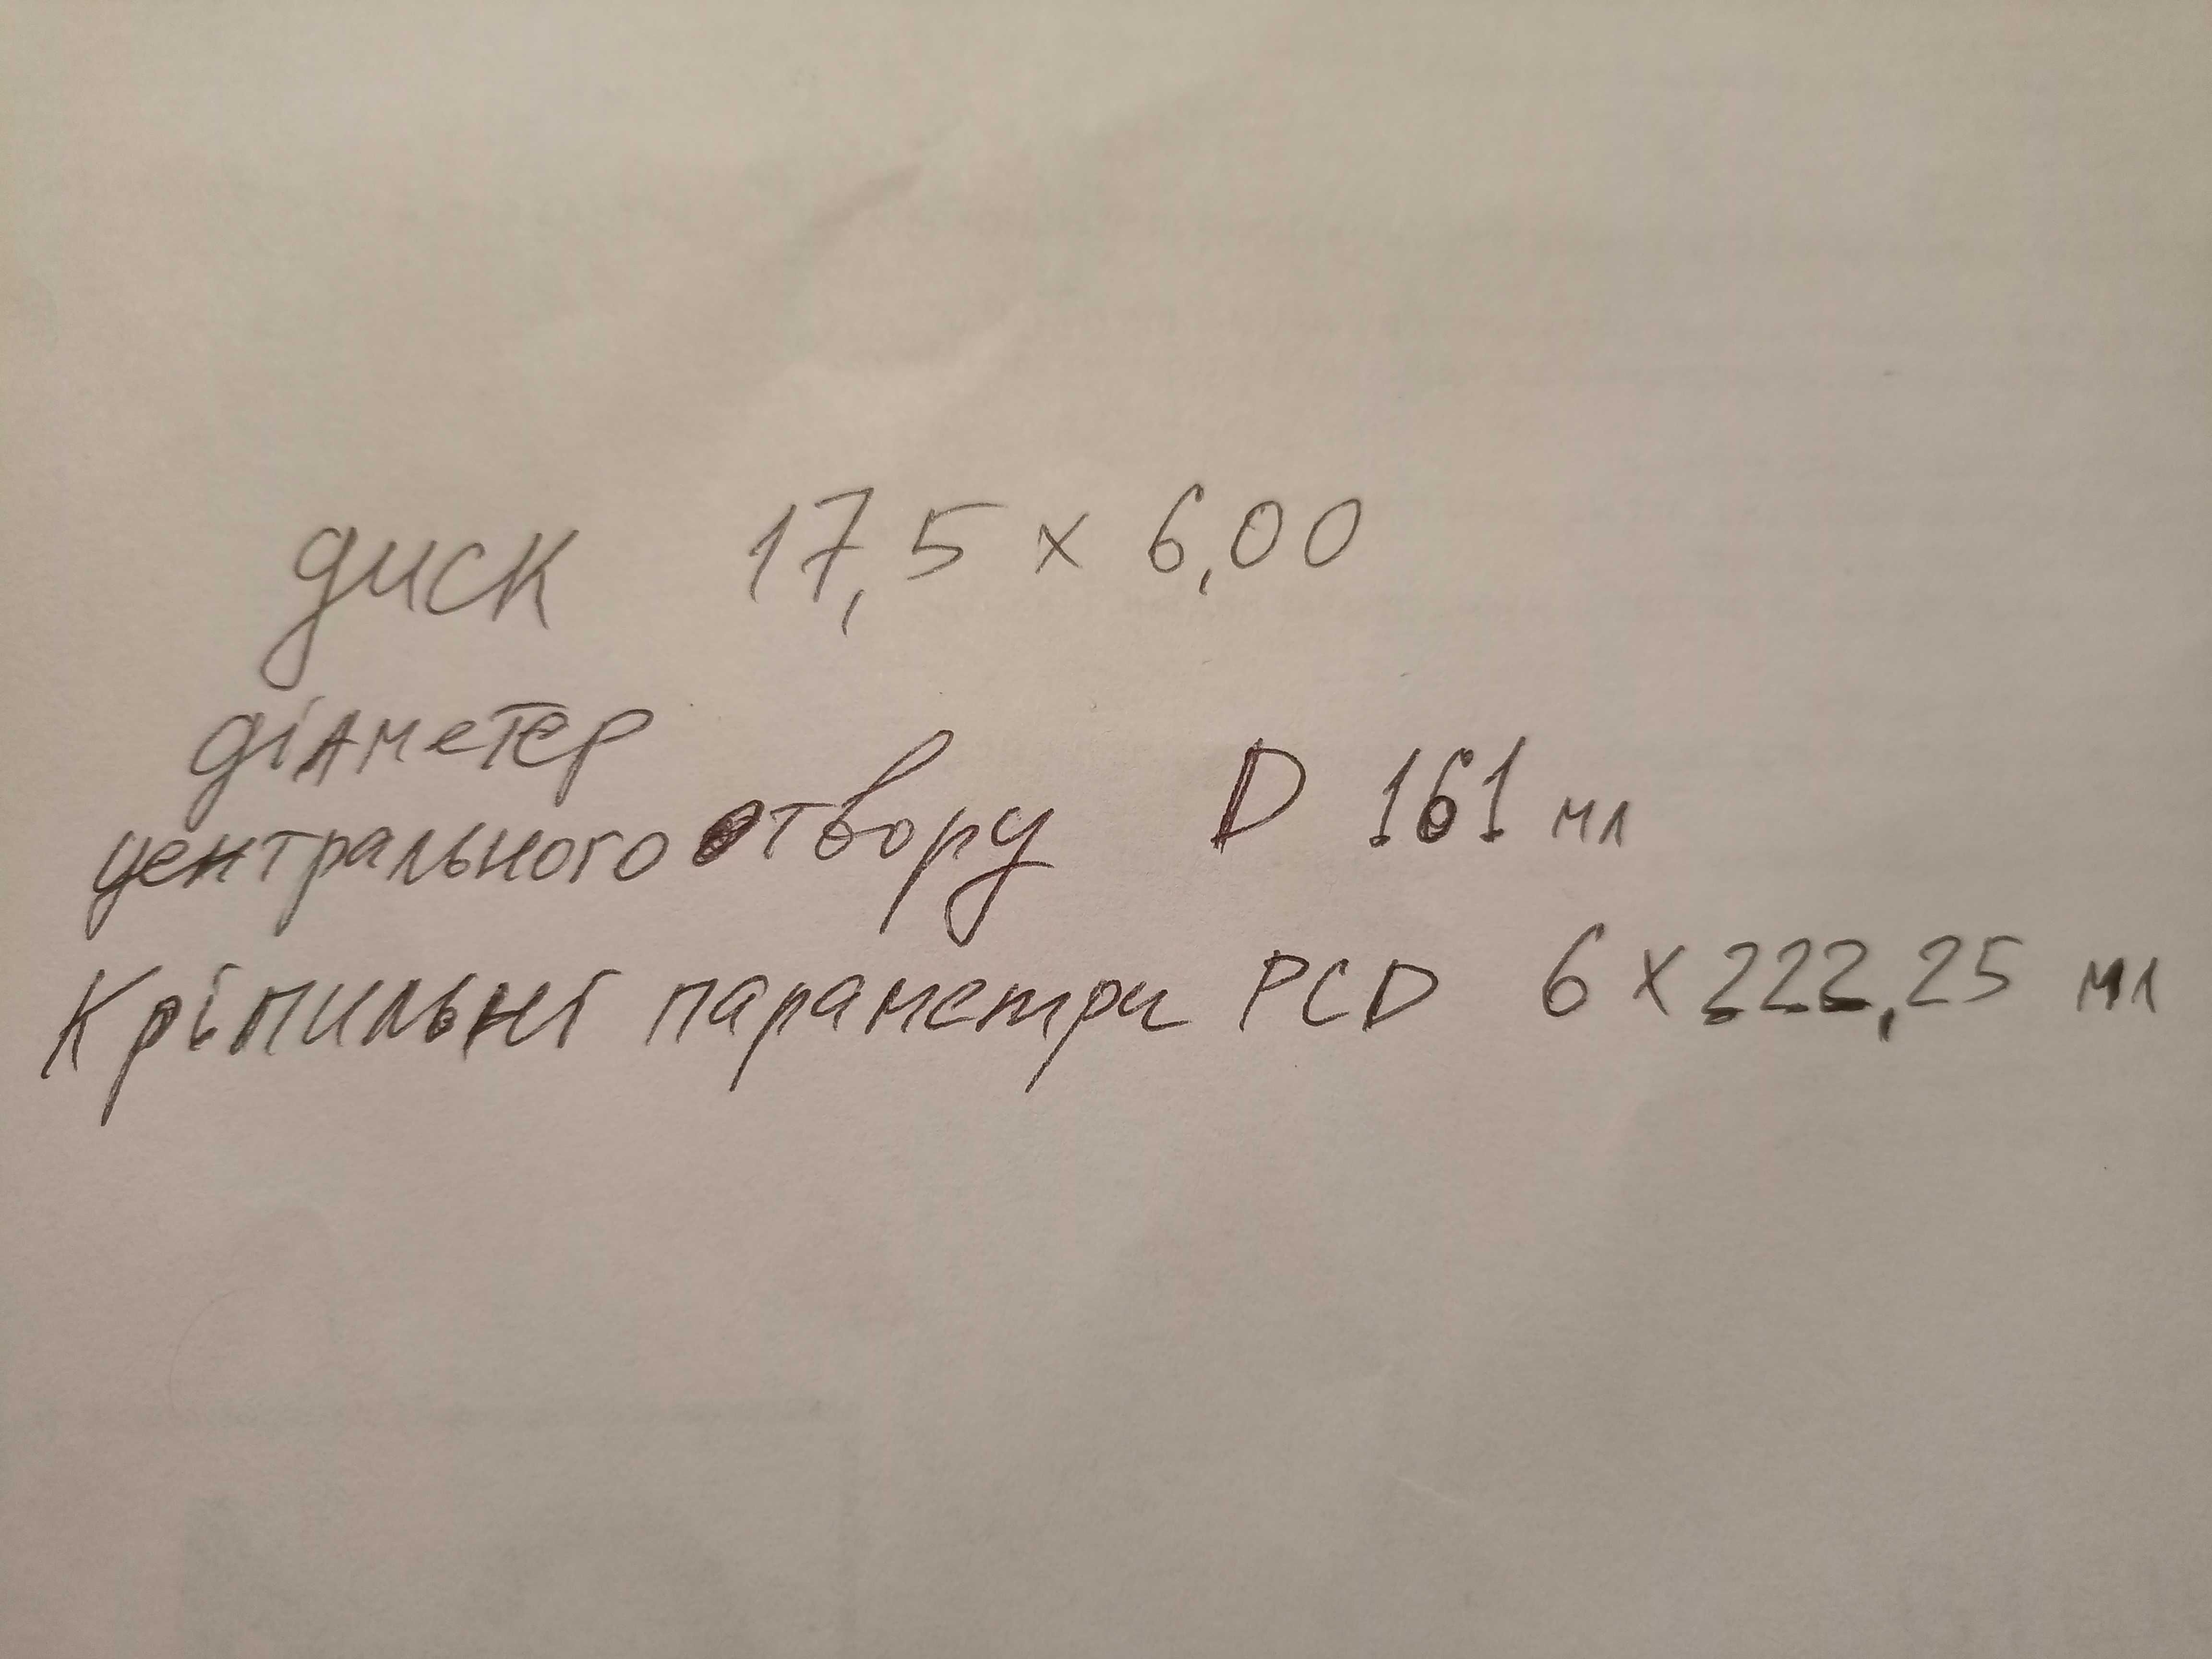 диск 17,5 x 6,00
діаметер
центрального отвору D 161 мл
Кріпильні параметри PCD 6 x 222,25 мл